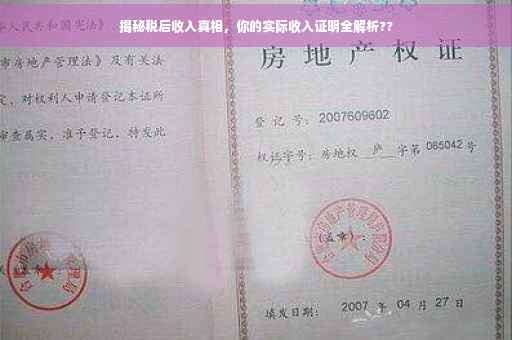 揭秘税后收入真相，你的实际收入证明全解析??
人民共和国宪法》
市房地产管理法》及有关法
定，对权利人申请登记本证所
审查属实，准予登记，特发此
房地产权证
登 记 号：2007609602
权证字号：房地权 庐 字第 085042 号
(盖章)：
填发日期： 2007 年 04 月 27 日